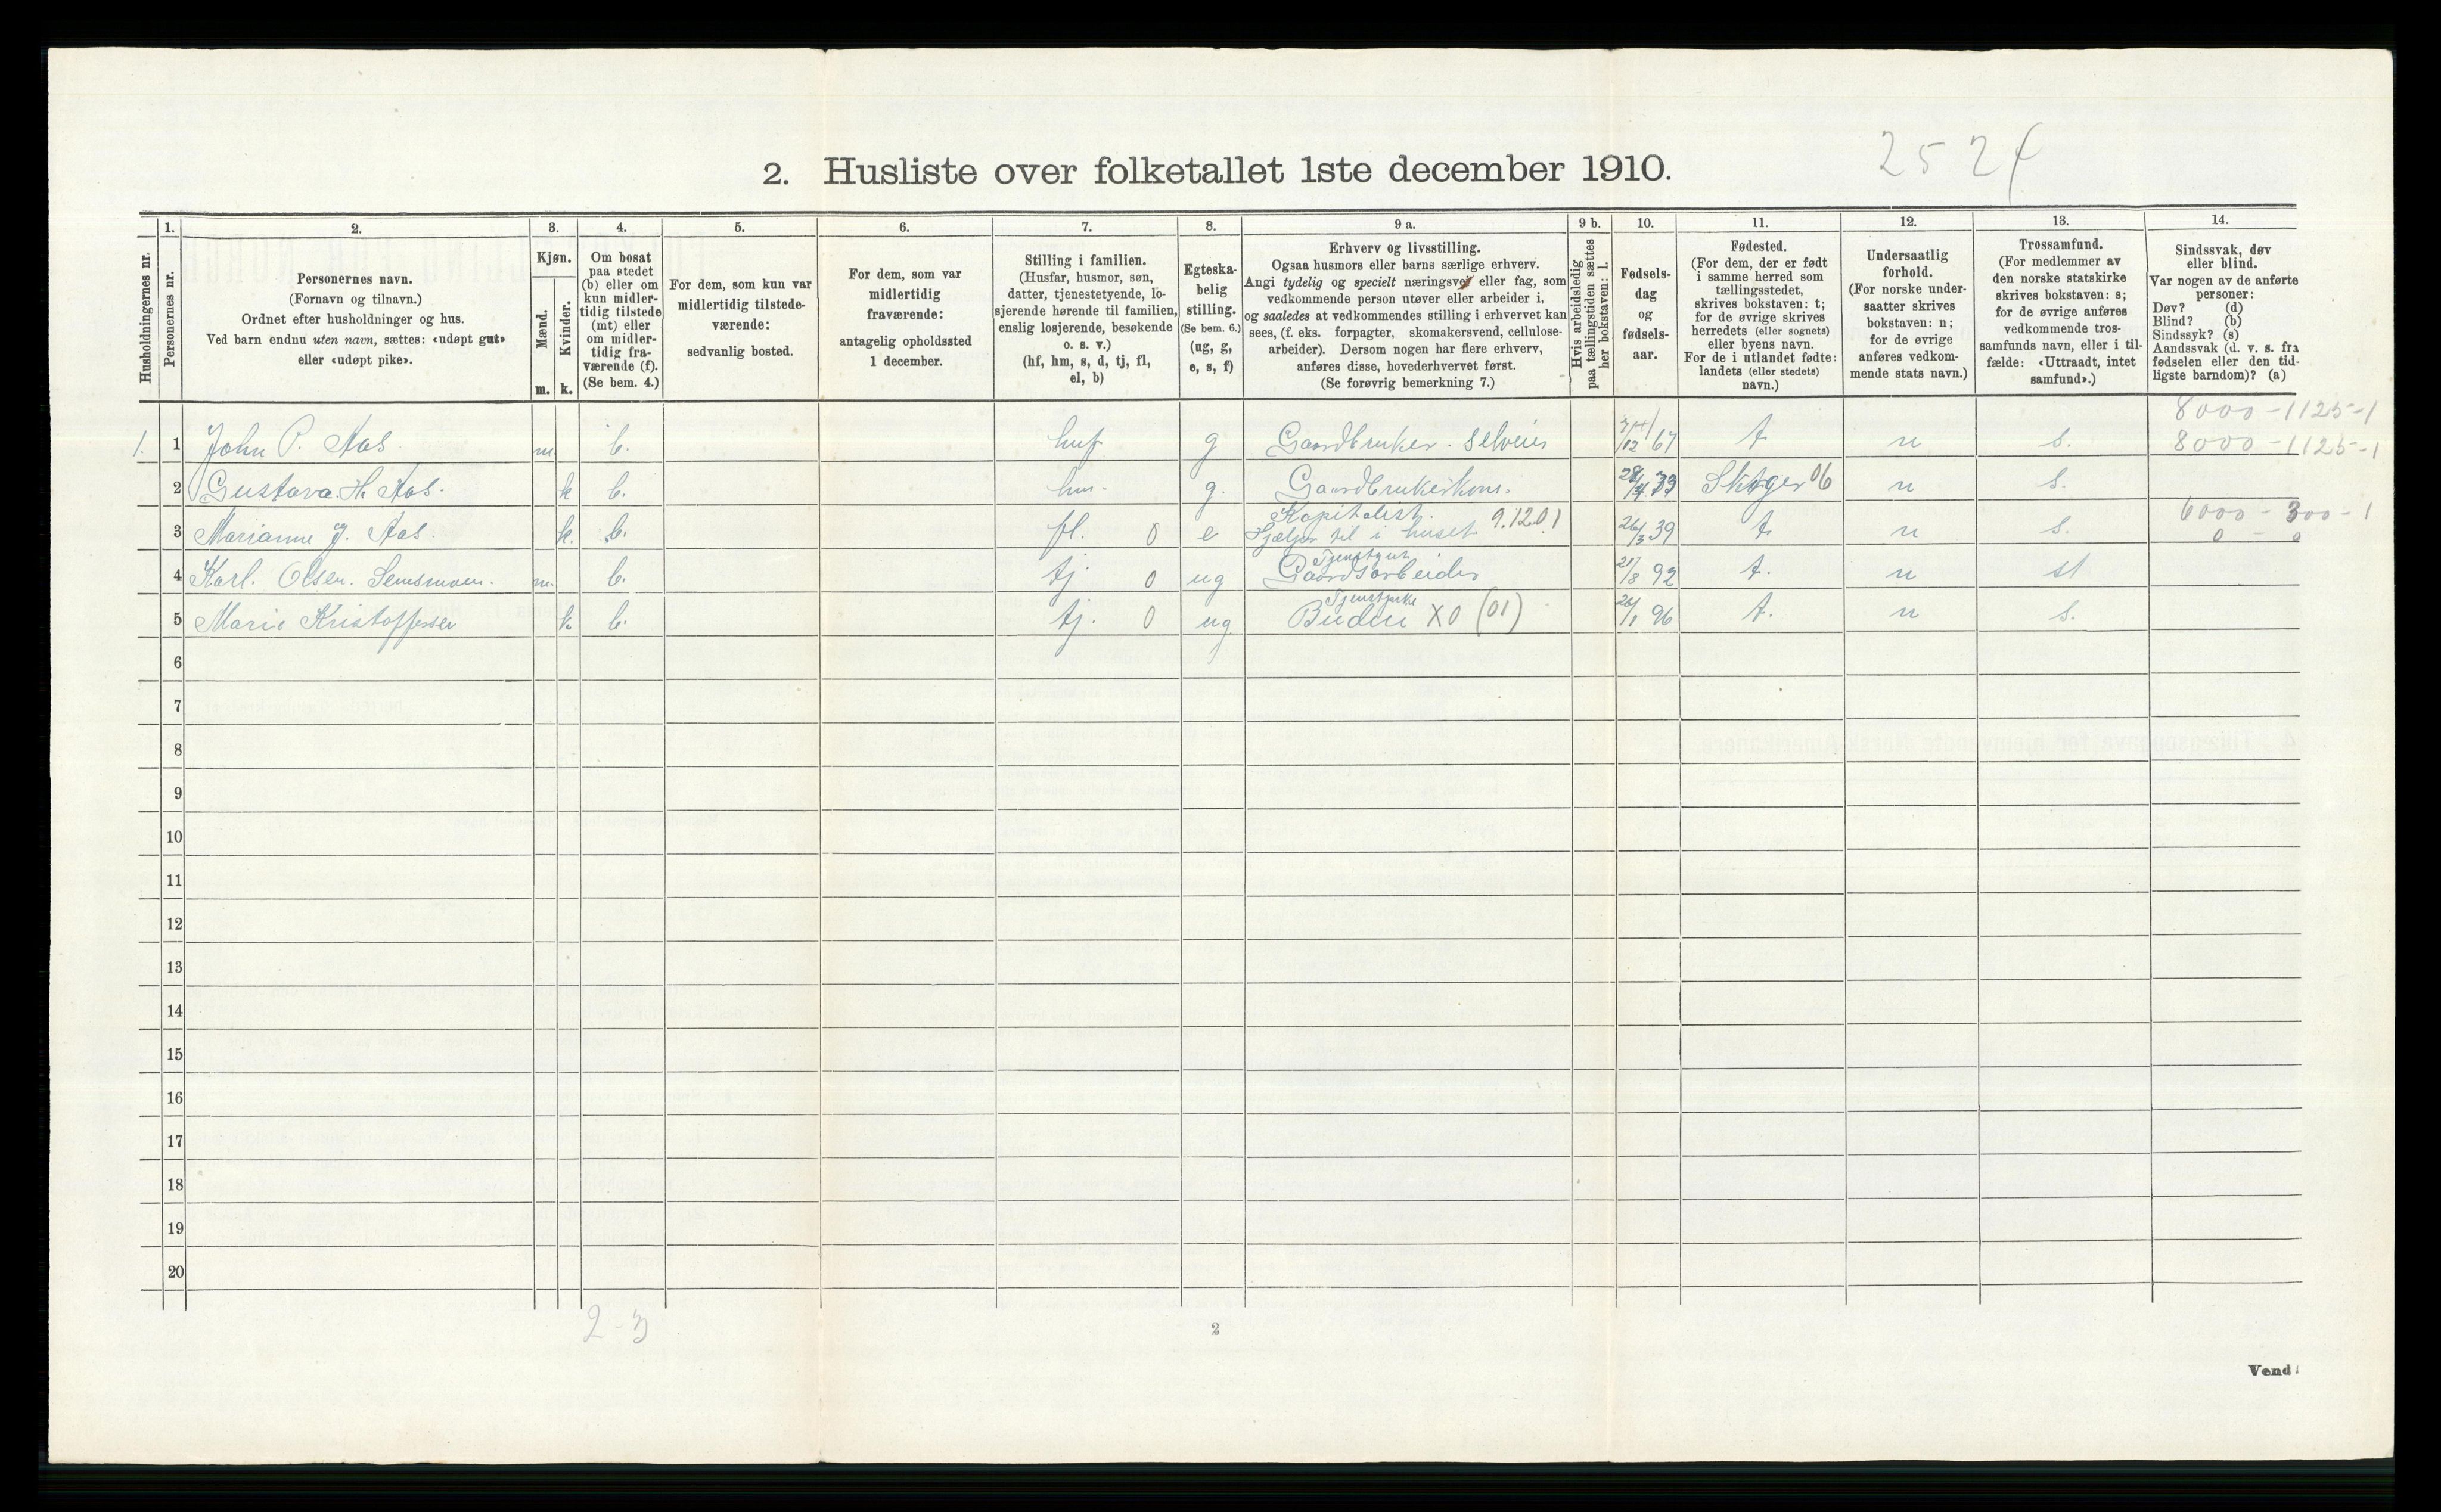 2. Husliste over folketallet 1ste december 1910.
Husholdningernes nr.
1.
Personernes nr.
2.
Personernes navn.
(Fornavn og tilnavn.)
Ordnet efter husholdninger og hus.
Ved barn endnu uten navn, sættes: «udøpt gut»
eller «udøpt pike».
3.
Kjøn.
Mænd. Kvinder.
m. k.
4.
Om bosat
paa stedet
(b) eller om
kun midler-
tidig tilstede
(mt) eller
om midler-
tidig fra-
værende (f).
(Se bem. 4.)
5.
For dem, som kun var
midlertidig tilstede-
værende:
sedvanlig bosted.
6.
For dem, som var
midlertidig
fraværende:
antagelig opholdssted
1 december.
7.
Stilling i familien.
(Husfar, husmor, søn,
datter, tjenestetyende, lo-
sjerende hørende til familien,
enslig losjerende, besøkende
o. s. v.)
(hf, hm, s, d, tj, fl,
el, b)
8.
Egteska-
belig
stilling.
(Se bem. 6.)
(ug, g,
e, s, f)
9 a.
Erhverv og livsstilling.
Ogsaa husmors eller barns særlige erhverv.
Angi tydelig og specielt næringsvei eller fag, som
vedkommende person utøver eller arbeider i,
og saaledes at vedkommendes stilling i erhvervet kan
sees, (f. eks. forpagter, skomakersvend, cellulose-
arbeider). Dersom nogen har flere erhverv,
anføres disse, hovederhvervet først.
(Se forøvrig bemerkning 7.)
9 b.
Hvis arbeidsledig
paa tællingstiden sættes
her bokstaven: l.
10.
Fødsels-
dag
og
fødsels-
aar.
11.
Fødested.
(For dem, der er født
i samme herred som
tællingsstedet,
skrives bokstaven: t;
for de øvrige skrives
herredets (eller sognets)
eller byens navn.
For de i utlandet fødte:
landets (eller stedets)
navn.)
12.
Undersaatlig
forhold.
(For norske under-
saatter skrives
bokstaven: n;
for de øvrige
anføres vedkom-
mende stats navn.)
13.
Trossamfund.
(For medlemmer av
den norske statskirke
skrives bokstaven: s;
for de øvrige anføres
vedkommende tros-
samfunds navn, eller i til-
fælde: «Uttraadt, intet
samfund».)
14.
Sindssvak, døv
eller blind.
Var nogen av de anførte
personer:
Døv? (d)
Blind? (b)
Sindssyk? (s)
Aandssvak (d. v. s. fra
fødselen eller den tid-
ligste barndom)? (a)
8000-1125-1
1. 1 John P. Aas. m. b. huf g Gaardbruker. selveier 67 t. n s. 8000-1125-1
2 Gustava. H. Aas. k b. hm. g. Gaardbrukerkone. 28/4 Skoger 06 n s.
Kapitalist. 9.12.01 6000-300-1
3 Marianne J. Aas. k. b. fl. 0 e Hjælper til i huset 26/3 39 t. n s. 0 - 0
Tjenstgut
4 Karl. Olsen. m. b. tj 0 ug Gaardsarbeider 21/8 92 t. n st
Tjenstpike
5 Marie Kristoffersen k b. tj. 0 ug Budeie X0 (01) 26/1 96 t. n s.
6
7
8
9
10
11
12
13
14
15
16
17
18
19
20
2-3
2
Vend!